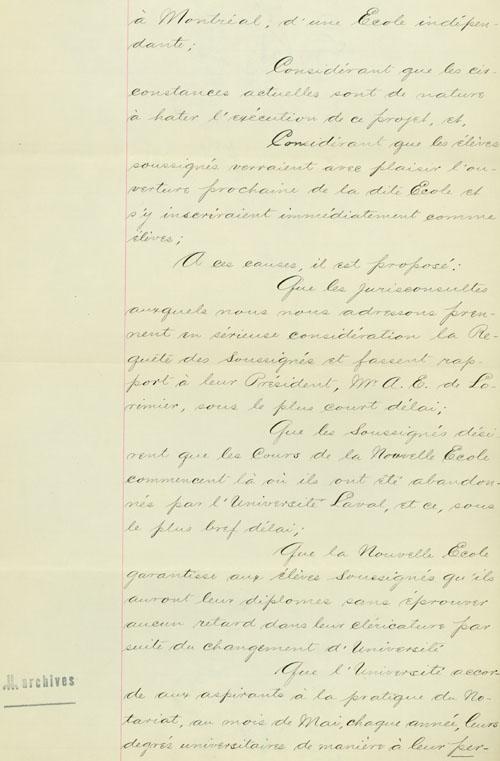 à Montréal, d'une Ecole indépen-
dante;
Considérant que les cir-
constances actuelles sont de nature
à hater l'exécution de ce projet, et,
Considérant que les élèves
soussignés verraient avec plaisir l'ou-
verture prochaine de la dite Ecole et
s'y inscriraient immédiatement comme
élèves;
A ces causes, il est proposé:
Que les Jurisconsultes
auxquels nous nous adressons pren-
nent en sérieuse considération la Re-
quête des Soussignés et fassent rap-
port à leur Président, Mr A. E. de Lo-
rimier, sous le plus court délai;
Que les Soussignés dési
rent que les Cours de la Nouvelle Ecole
commencent là où ils ont été abandon-
nés par l'Université Laval, et ce, sous
le plus bref délai;
Que la Nouvelle Ecole
garantisse aux élèves Soussignés qu'ils
auront leur diplomes sans éprouver
aucun retard dans leur cléricature par
suite du changement d'Université
Que l'Université accor-
de aux aspirants à la pratique du No-
tariat, au mois de Mai, chaque année, leurs
degrés universitaires de manière à leur per-
archives